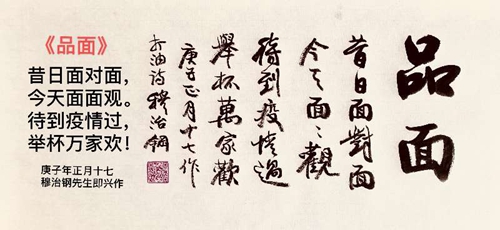 《品面》
昔日面对面，
今天面面观。
待到疫情过，
举杯万家欢！
庚子年正月十七
穆治钢先生即兴作
品面
昔日面對面
今天面面觀
待到疫情過
舉杯萬家歡
庚子正月十七作
打油诗穆治钢